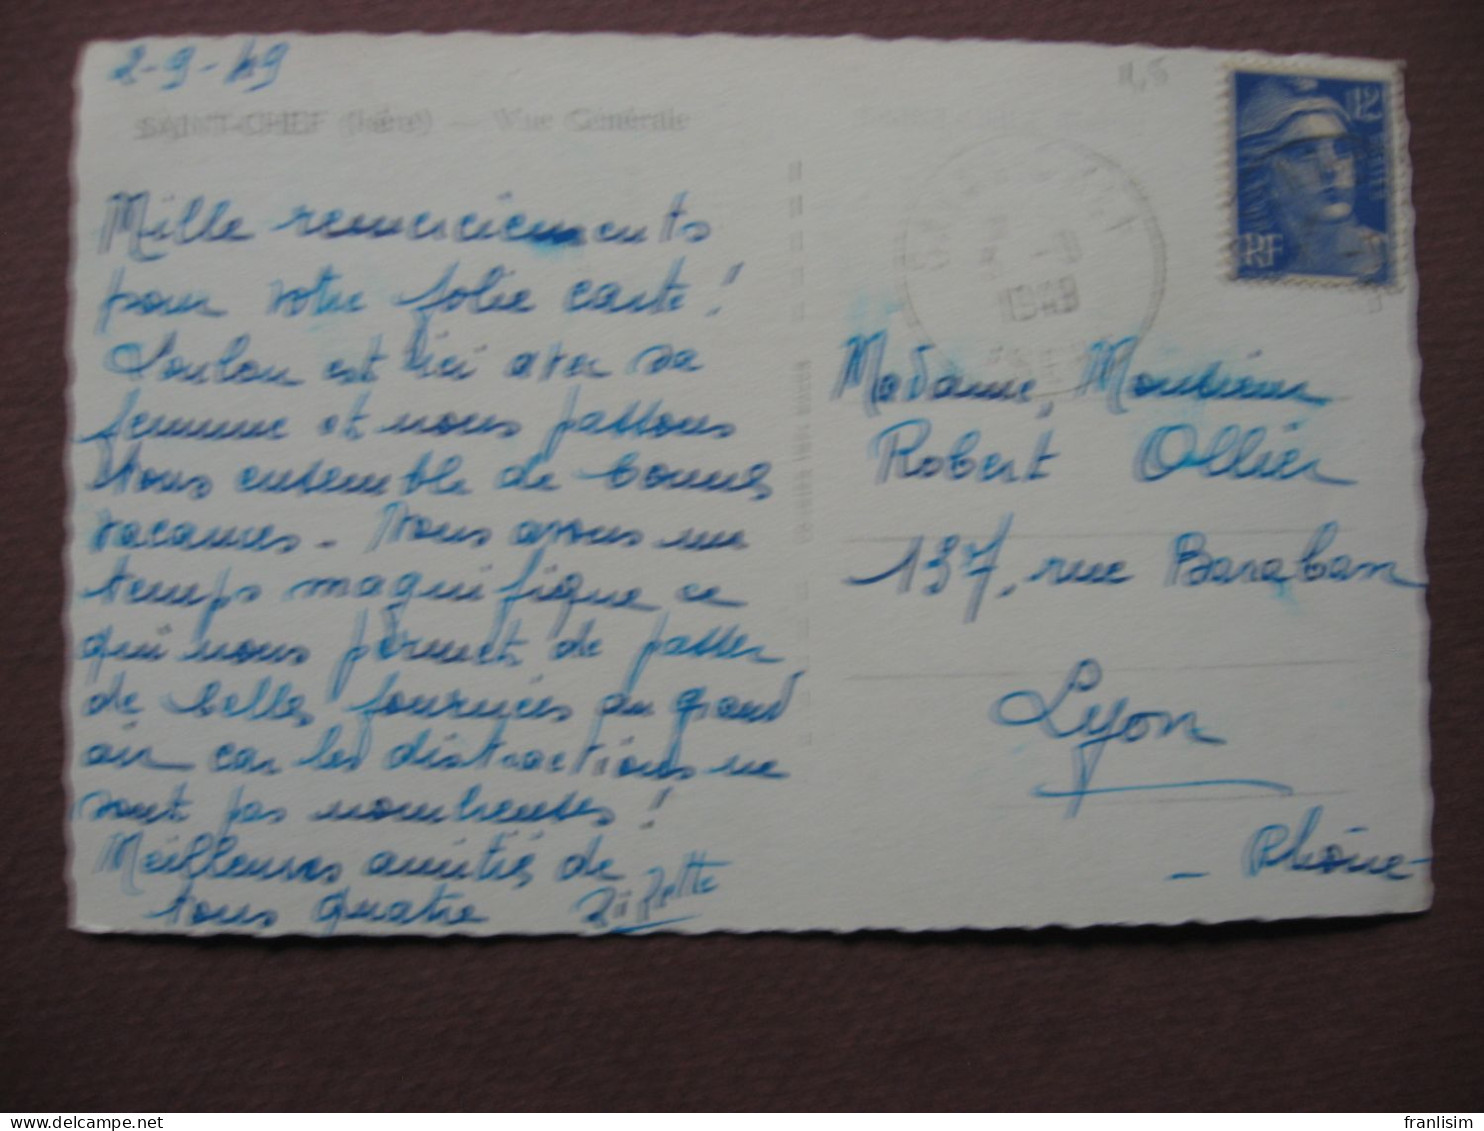 2-9-49
SAINT-CHEF (Isère) — Vue Générale
Mille remerciements
pour votre jolie carte !
Loulou est ici avec sa
femme et nous passons
tous ensemble de bonnes
vacances. Nous avons un
temps magnifique ce
qui nous permet de passer
de belles journées au grand
air car les distractions ne
sont pas nombreuses !
Meilleures amitiés de
tous quatre
12
RF
1949
Madame, Monsieur
Robert Ollier
137, rue Baraban
Lyon
- Rhône -
delcampe.net
franlisim